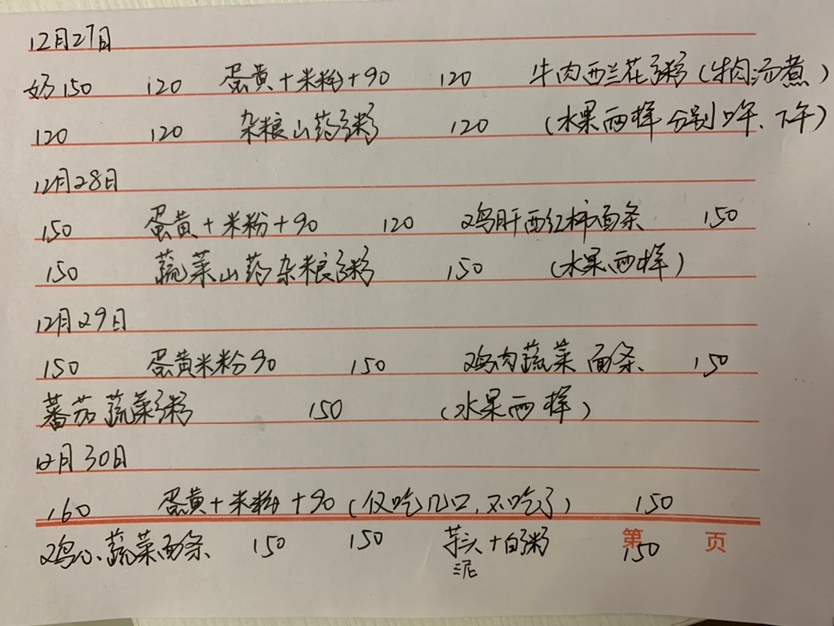 12月27日
奶150 120 蛋黄+米粉+90 120 牛肉西兰花粥(牛肉汤煮)
120 120 杂粮山药粥 120 (水果两样 分别上午、下午)
12月28日
150 蛋黄+米粉+90 120 鸡肝西红柿面条 150
150 蔬菜山药杂粮粥 150 (水果两样)
12月29日
150 蛋黄米粉90 150 鸡肉蔬菜面条 150
蕃茄蔬菜粥 150 (水果两样)
12月30日
160 蛋黄+米粉+90(仅吃几口,不吃了) 150
鸡心蔬菜面条 150 150 芋头泥+白粥 150
第 页